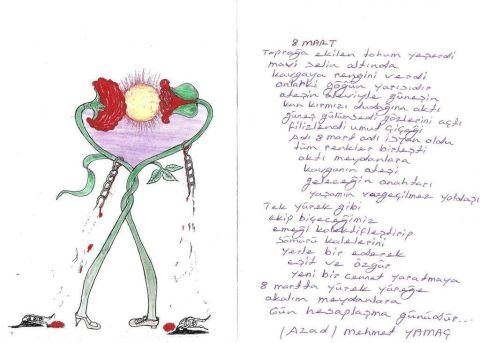 8 MART
Toprağa ekilen tohum yeşerdi
mavi selin altında
kavgaya rengini verdi
onlarki göğün yarısıdır
ateşin aleviyle güneşin
kan kırmızı dudağına aktı
güneş gülümsedi gözlerini açtı
filizlendi umut çiçeği
Adı 8 mart adı isyan oldu
tüm renkler birleşti
aktı meydanlara
kavganın ateşi
geleceğin anahtarı
yaşamın vazgeçilmez yoldaşı
Tek yürek gibi
ekip biçeceğimiz
emeği kolektifleştirip
sömürü kalelerini
yerle bir ederek
eşit ve özgür
yeni bir cennet yaratmaya
8 martta yürek yüreğe
akalım meydanlara
Gün hesaplaşma günüdür...
(Azad) Mehmet YAMAÇ